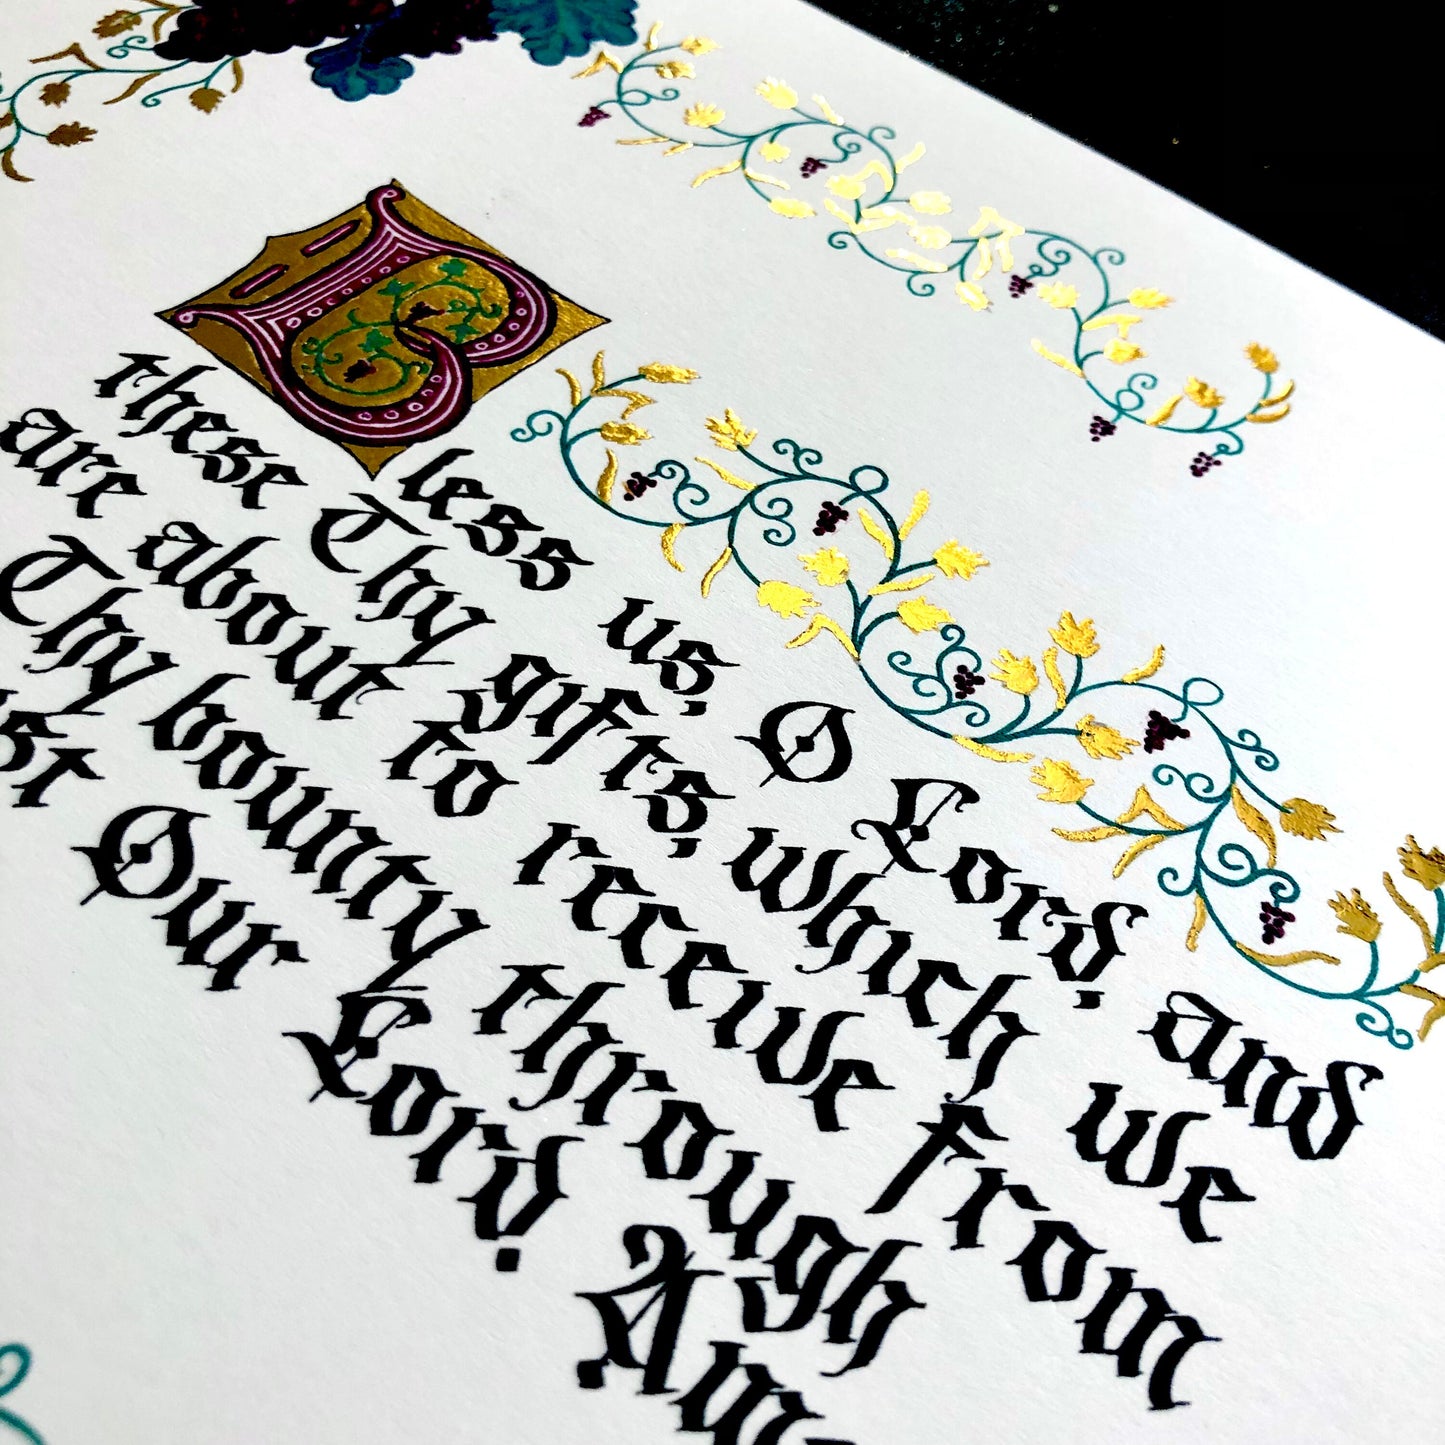 Bless us, O Lord, and
these Thy gifts, which we
are about to receive from
Thy bounty through
st Our Lord. Am